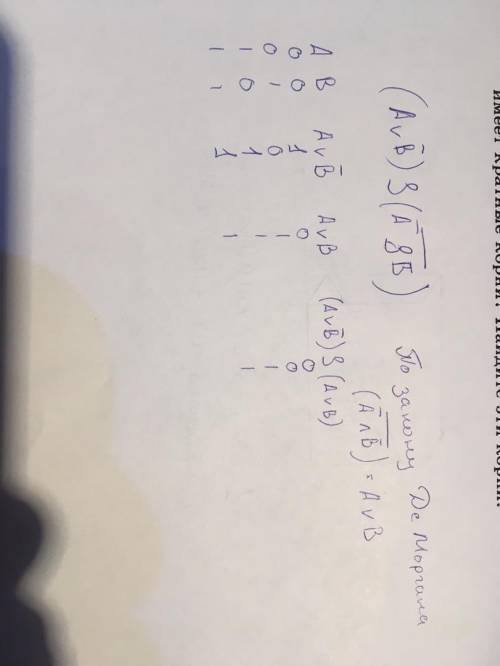 имеет кратные корни? Найдите эти корни
(A∨B̄) & (\overline{Ā & B̄}) По закону Де Моргана
(\overline{Ā ∧ B̄}) = A∨B
A B A∨B̄ A∨B (A∨B̄) & (A∨B)
0 0 1 0 0
0 1 0 1 0
1 0 1 1 1
1 1 1 1 1